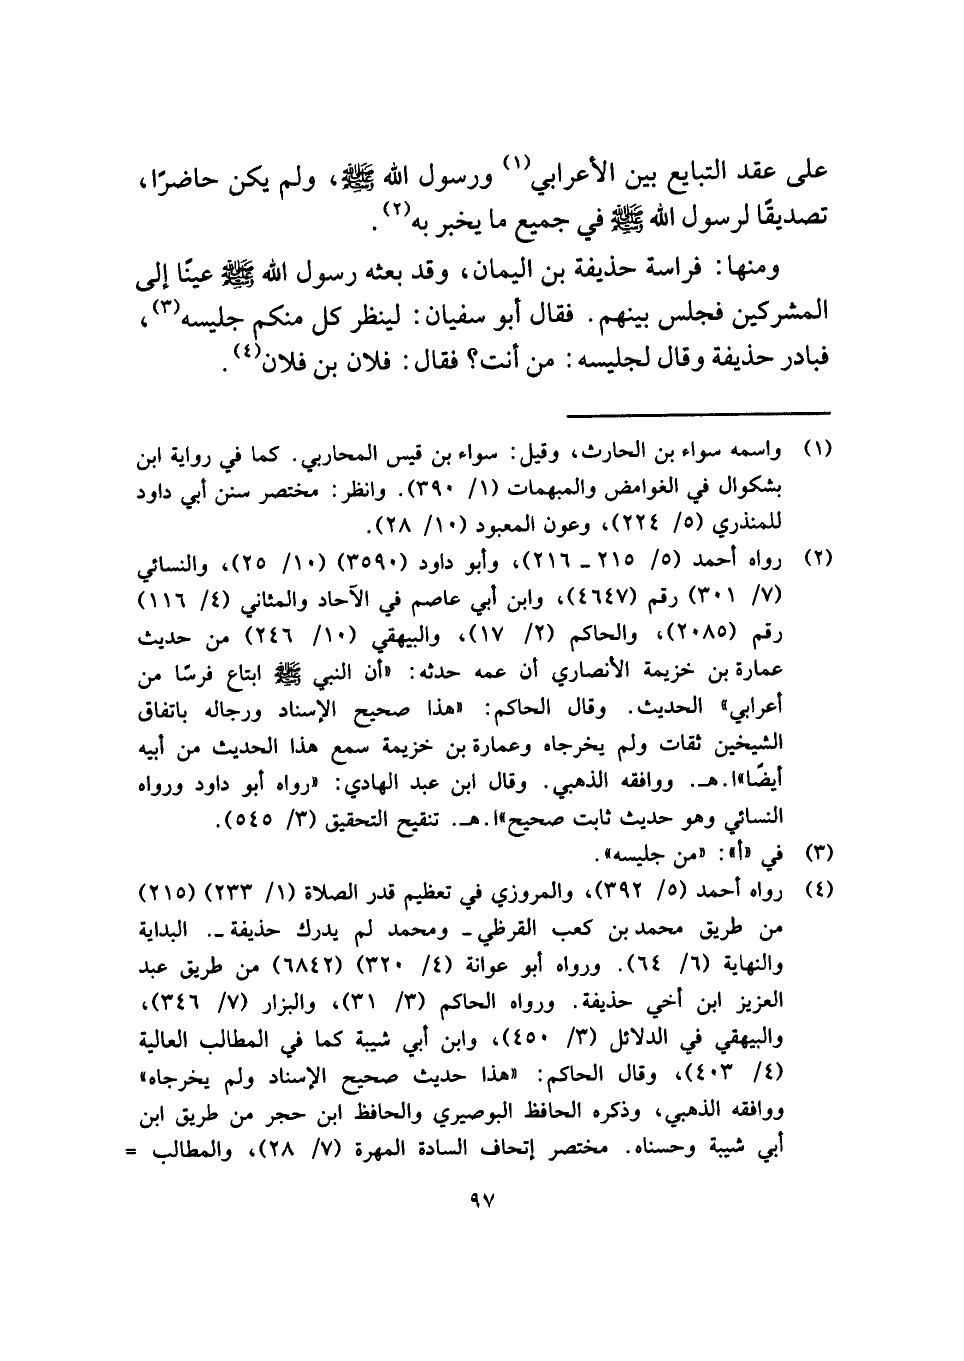 على عقد التبايع بين الأعرابي(١) ورسول الله ﷺ، ولم يكن حاضرًا،
تصديقًا لرسول الله ﷺ في جميع ما يخبر به(٢).
ومنها: فراسة حذيفة بن اليمان، وقد بعثه رسول الله ﷺ عينًا إلى
المشركين فجلس بينهم. فقال أبو سفيان: لينظر كل منكم جليسه(٣)،
فبادر حذيفة وقال لجليسه: من أنت؟ فقال: فلان بن فلان(٤).
(١) واسمه سواء بن الحارث، وقيل: سواء بن قيس المحاربي. كما في رواية ابن
بشكوال في الغوامض والمبهمات (١/ ٣٩٠). وانظر: مختصر سنن أبي داود
للمنذري (٥/ ٢٢٤)، وعون المعبود (١٠/ ٢٨).
(٢) رواه أحمد (٥/ ٢١٥ ـ ٢١٦)، وأبو داود (٣٥٩٠) (١٠/ ٢٥)، والنسائي
(٧/ ٣٠١) رقم (٤٦٤٧)، وابن أبي عاصم في الآحاد والمثاني (٤/ ١١٦)
رقم (٢٠٨٥)، والحاكم (٢/ ١٧)، والبيهقي (١٠/ ٢٤٦) من حديث
عمارة بن خزيمة الأنصاري أن عمه حدثه: «أن النبي ﷺ ابتاع فرسًا من
أعرابي» الحديث. وقال الحاكم: «هذا صحيح الإسناد ورجاله باتفاق
الشيخين ثقات ولم يخرجاه وعمارة بن خزيمة سمع هذا الحديث من أبيه
أيضًا»ا.هـ. ووافقه الذهبي. وقال ابن عبد الهادي: «رواه أبو داود ورواه
النسائي وهو حديث ثابت صحيح»ا.هـ. تنقيح التحقيق (٣/ ٥٤٥).
(٣) في «أ»: «من جليسه».
(٤) رواه أحمد (٥/ ٣٩٢)، والمروزي في تعظيم قدر الصلاة (١/ ٢٣٣) (٢١٥)
من طريق محمد بن كعب القرظي ـ ومحمد لم يدرك حذيفة ـ. البداية
والنهاية (٦/ ٦٤). ورواه أبو عوانة (٤/ ٣٢٠) (٦٨٤٢) من طريق عبد
العزيز ابن أخي حذيفة. ورواه الحاكم (٣/ ٣١)، والبزار (٧/ ٣٤٦)،
والبيهقي في الدلائل (٣/ ٤٥٠)، وابن أبي شيبة كما في المطالب العالية
(٤/ ٤٠٣)، وقال الحاكم: «هذا حديث صحيح الإسناد ولم يخرجاه»
ووافقه الذهبي، وذكره الحافظ البوصيري والحافظ ابن حجر من طريق ابن
أبي شيبة وحسناه. مختصر إتحاف السادة المهرة (٧/ ٢٨)، والمطالب =
٩٧